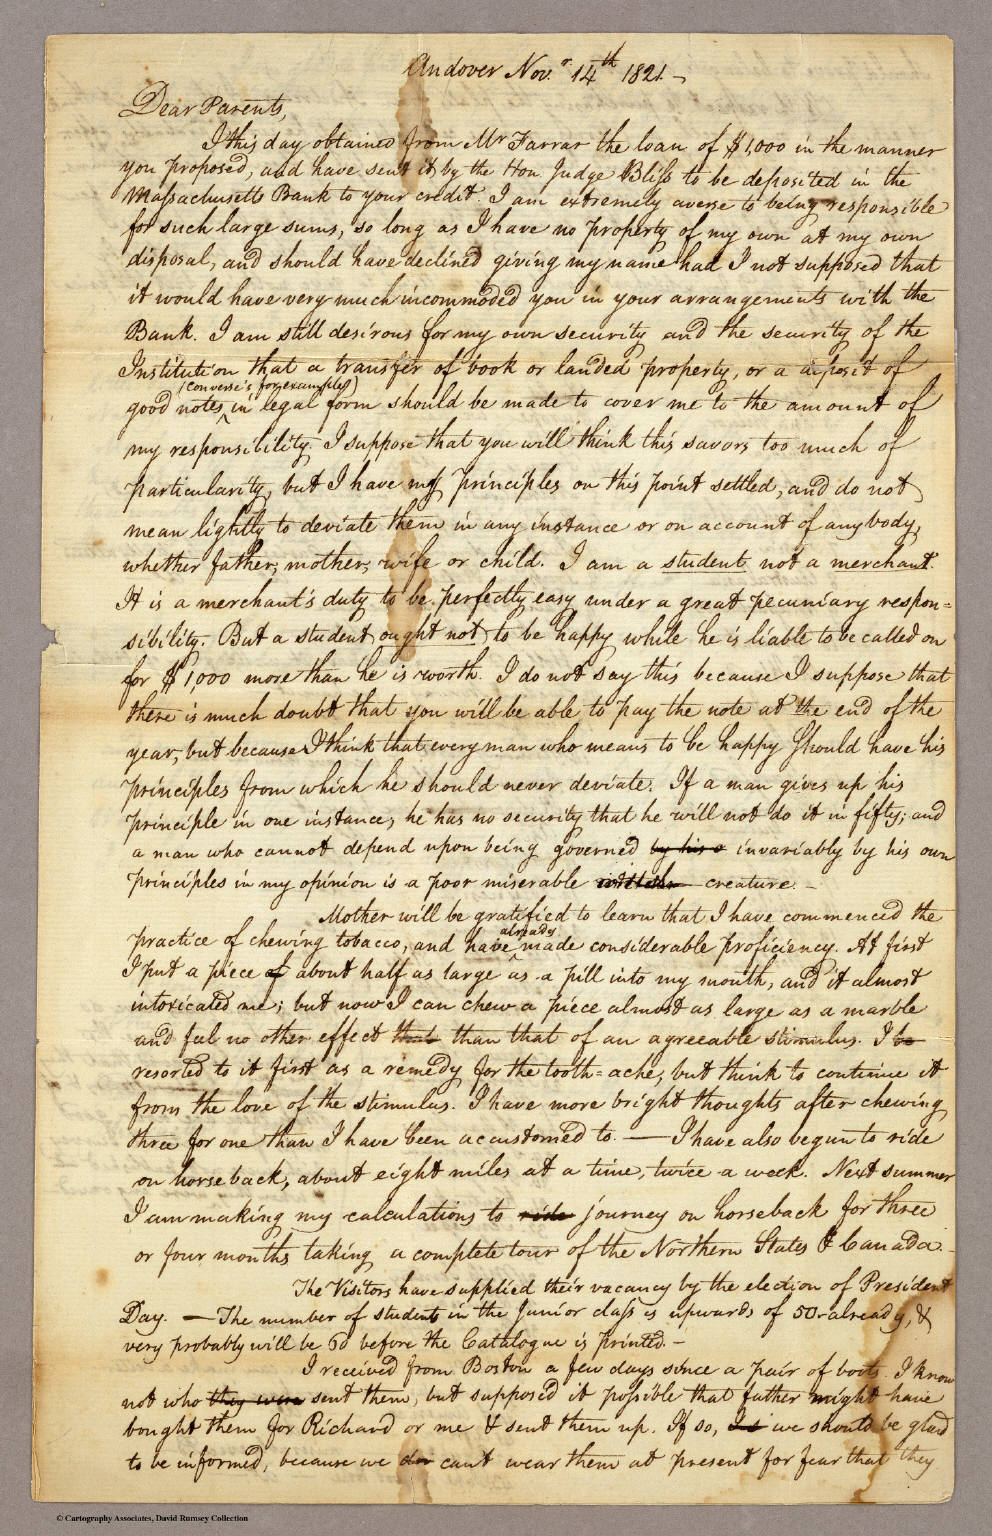 Andover Nov.r 14th 1821.
Dear Parents,
I this day obtained from Mr Farrar the loan of $1,000 in the manner
you proposed, and have sent it by the Hon Judge Bliss to be deposited in the
Massachusetts Bank to your credit. I am extremely averse to being responsible
for such large sums, so long as I have no property of my own at my own
disposal, and should have declined giving my name had I not supposed that
it would have very much incommoded you in your arrangements with the
Bank. I am still desirous for my own security and the security of the
Institution that a transfer of book or landed property, or a deposit of
(Converse's for example)
good notes, in legal form should be made to cover me to the amount of
my responsibility. I suppose that you will think this savors too much of
particularity, but I have my principles on this point settled, and do not
mean lightly to deviate them in any instance or on account of any body,
whether father, mother, wife or child. I am a student not a merchant.
It is a merchant's duty to be perfectly easy under a great pecuniary respon=
sibility. But a student ought not to be happy while he is liable to be called on
for $1,000 more than he is worth. I do not say this because I suppose that
there is much doubt that you will be able to pay the note at the end of the
year, but because I think that every man who means to be happy should have his
principles from which he should never deviate. If a man gives up his
principle in one instance, he has no security that he will not do it in fifty; and
a man who cannot depend upon being governed by his o invariably by his own
principles in my opinion is a poor miserable creature. —
Mother will be gratified to learn that I have commenced the
already
practice of chewing tobacco, and have made considerable proficiency. At first
I put a piece of about half as large as a pill into my mouth, and it almost
intoxicated me; but now I can chew a piece almost as large as a marble
and feel no other effect that than that of an agreeable stimulus. I be
resorted to it first as a remedy for the tooth=ache, but think to continue it
from the love of the stimulus. I have more bright thoughts after chewing
three for one than I have been accustomed to. — I have also begun to ride
on horseback, about eight miles at a time, twice a week. Next summer
I am making my calculations to ride journey on horseback for three
or four months taking a complete tour of the Northern States & Canada.
The Visitors have supplied their vacancy by the election of President
Day. — The number of students in the Junior class is upwards of 50 already, &
very probably will be 60 before the Catalogue is printed. —
I received from Boston a few days since a pair of boots. I know
not who they were sent them, but supposed it possible that father might have
bought them for Richard or me & sent them up. If so, I s we should be glad
to be informed, because we can't wear them at present for fear that they
© Cartography Associates, David Rumsey Collection